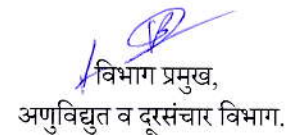 विभाग प्रमुख,
अणुविद्युत व दूरसंचार विभाग.